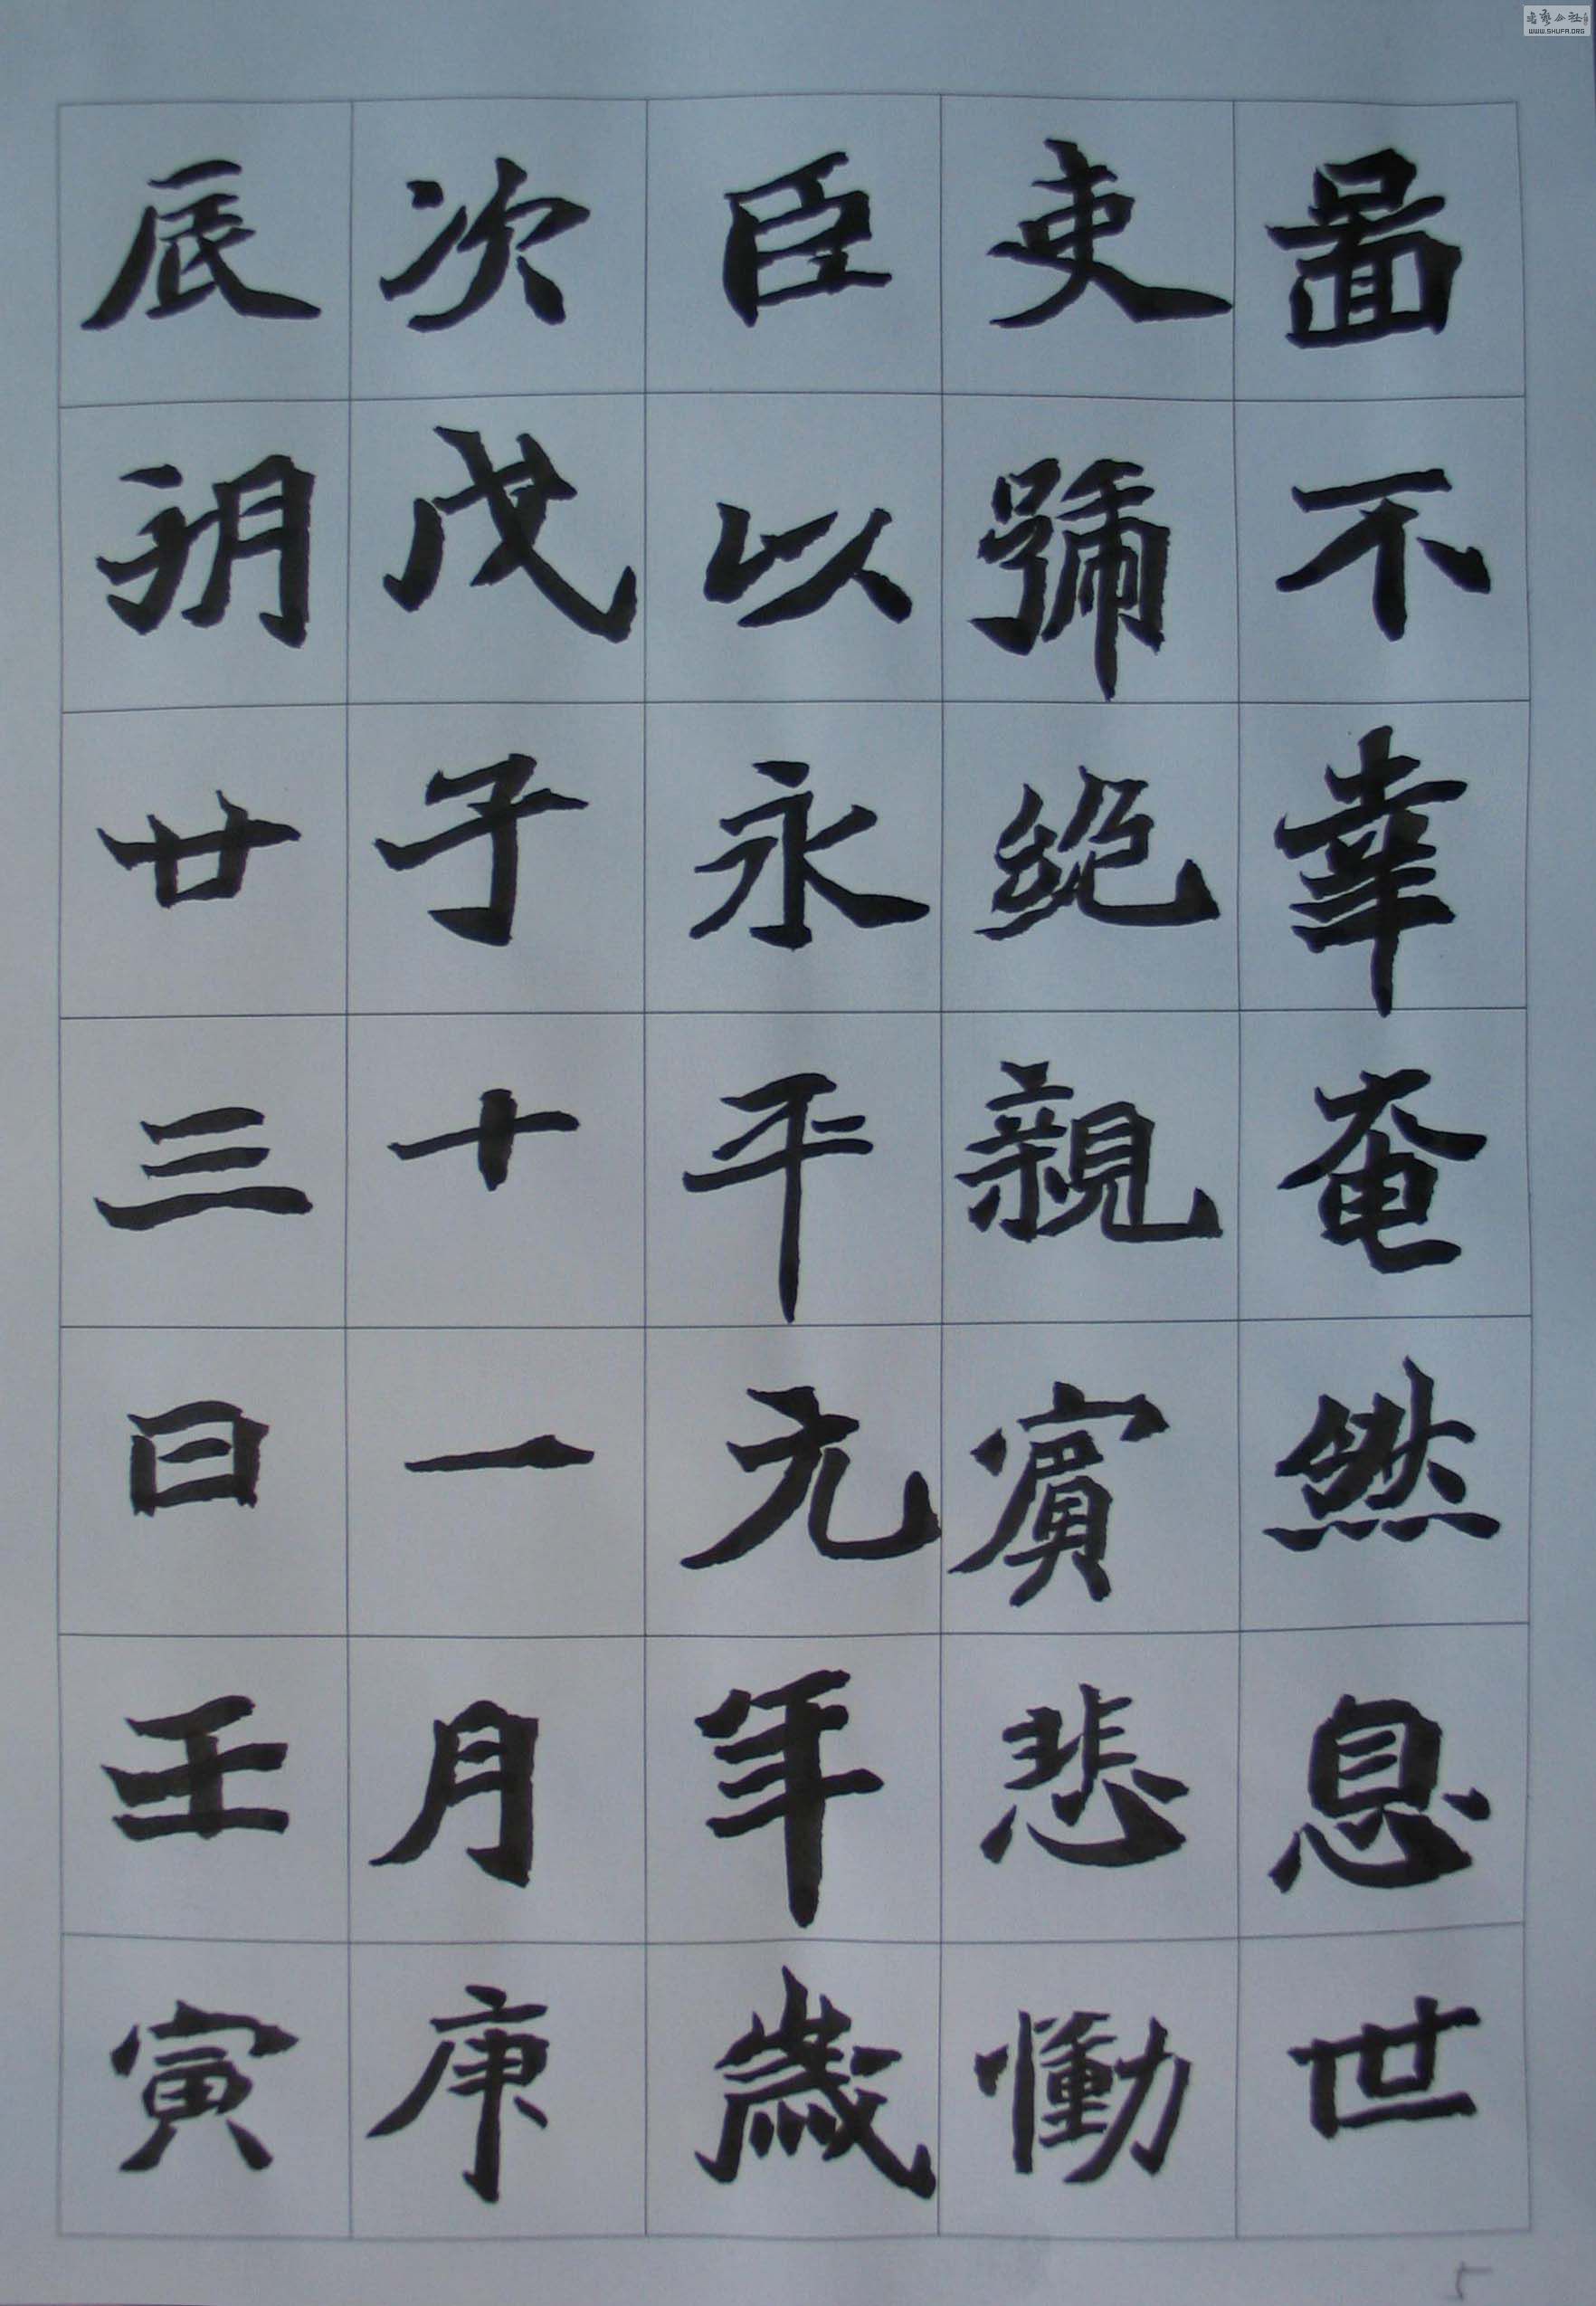 啚不幸奄然息世
吏號絕親賓悲慟
臣以永平元年歲
次戊子十一月庚
辰朔廿三日壬寅
5
WWW.SHUFA.ORG